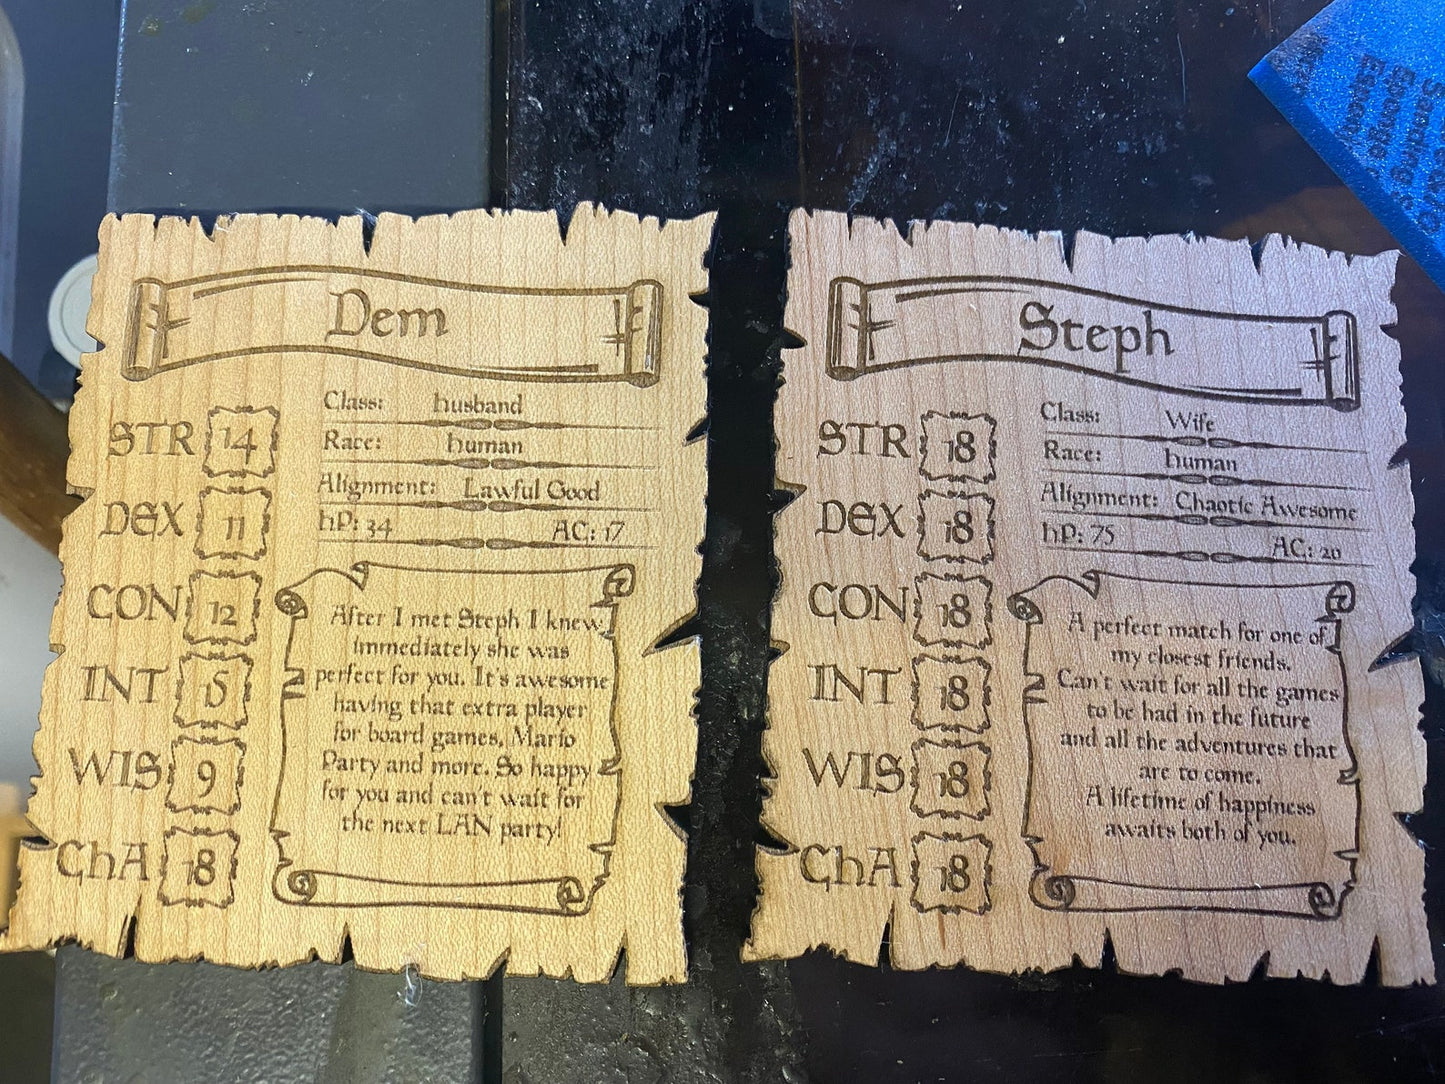 Dem
Class: husband
Race: human
Alignment: Lawful Good
hP: 34 AC: 17
STR 14
DEX 11
CON 12
INT 15
WIS 9
ChA 18
After I met Steph I knew
immediately she was
perfect for you. It's awesome
having that extra player
for board games, Mario
Party and more. So happy
for you and can't wait for
the next LAN party!
Steph
Class: Wife
Race: human
Alignment: Chaotic Awesome
hP: 75 AC: 20
STR 18
DEX 18
CON 18
INT 18
WIS 18
ChA 18
A perfect match for one of
my closest friends.
Can't wait for all the games
to be had in the future
and all the adventures that
are to come.
A lifetime of happiness
awaits both of you.